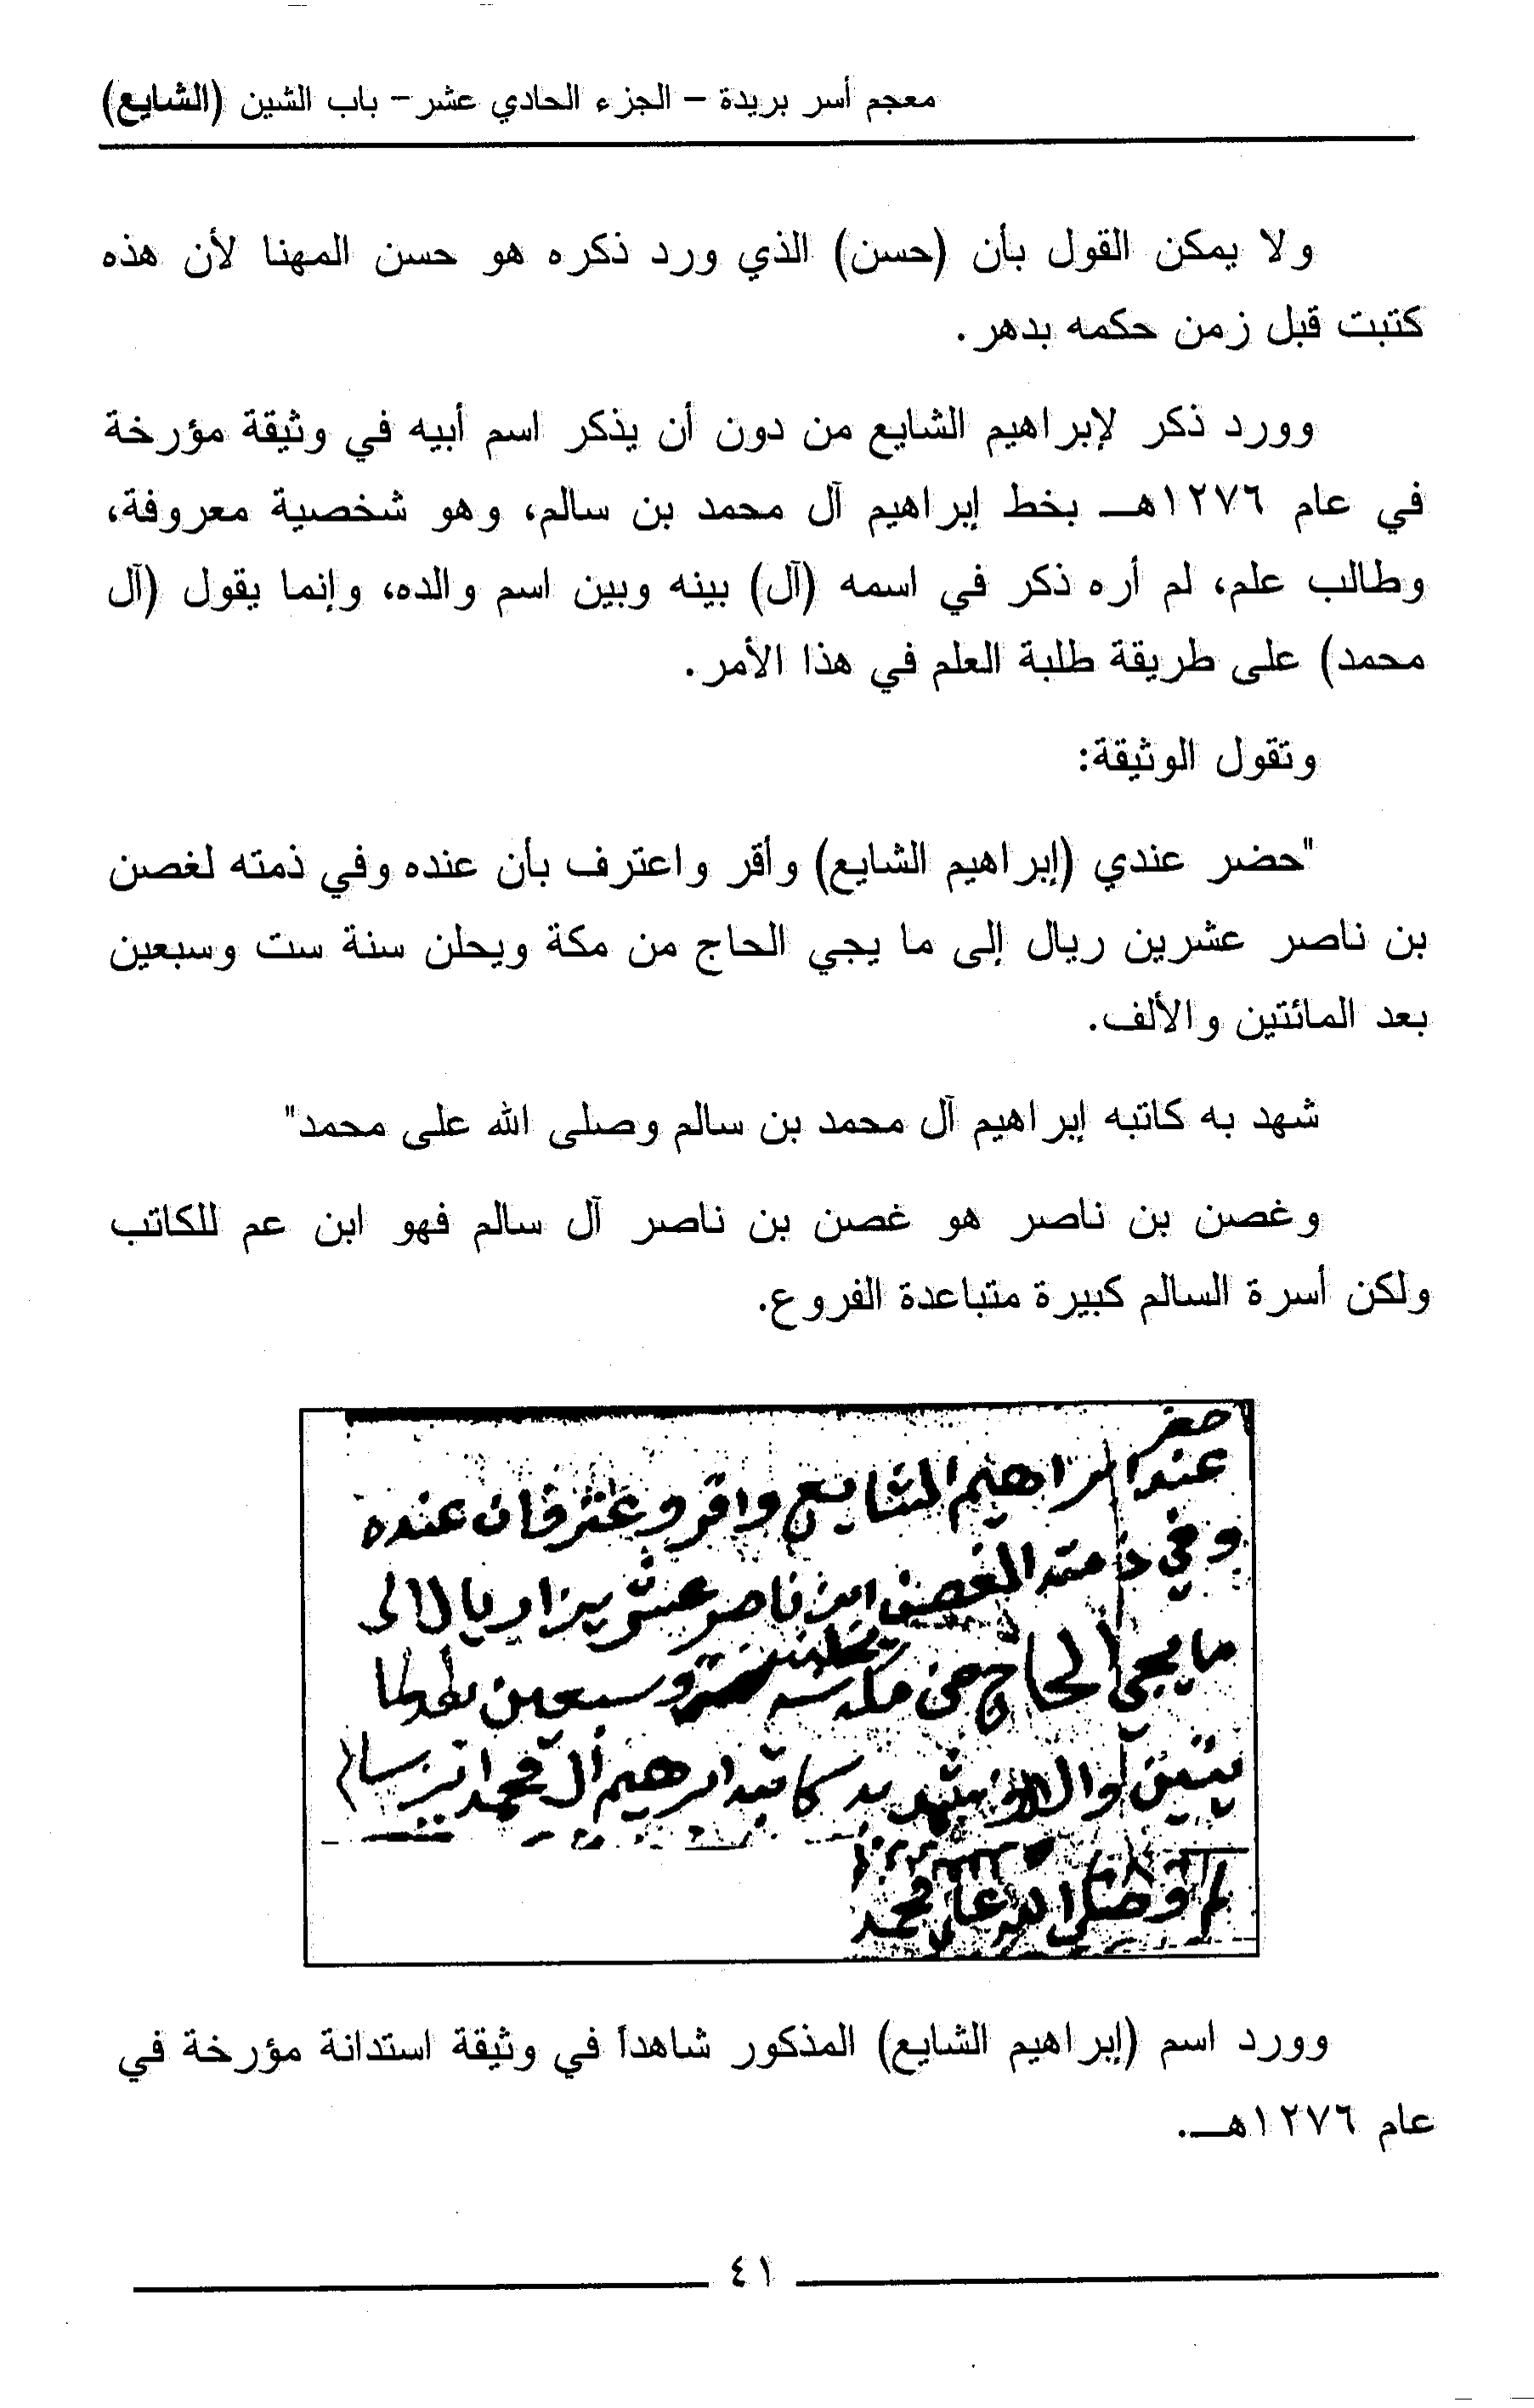 معجم أسر بريدة – الجزء الحادي عشر– باب الشين (الشايع)
ولا يمكن القول بأن (حسن) الذي ورد ذكره هو حسن المهنا لأن هذه
كتبت قبل زمن حكمه بدهر.
وورد ذكر لإبراهيم الشايع من دون أن يذكر اسم أبيه في وثيقة مؤرخة
في عام ١٢٧٦هـ بخط إبراهيم آل محمد بن سالم، وهو شخصية معروفة،
وطالب علم، لم أره ذكر في اسمه (آل) بينه وبين اسم والده، وإنما يقول (آل
محمد) على طريقة طلبة العلم في هذا الأمر.
وتقول الوثيقة:
"حضر عندي (إبراهيم الشايع) وأقر واعترف بأن عنده وفي ذمته لغصن
بن ناصر عشرين ريال إلى ما يجي الحاج من مكة ويحلن سنة ست وسبعين
بعد المائتين والألف.
شهد به كاتبه إبراهيم آل محمد بن سالم وصلى الله على محمد"
وغصن بن ناصر هو غصن بن ناصر آل سالم فهو ابن عم للكاتب
ولكن أسرة السالم كبيرة متباعدة الفروع.
حضر
ابراهيم الشايع واقر وعترف ان عنده
وفي ذمته الغصن ابن ناصر عشرين اريال الى
ما يجي الحاج من مكة سنة وسبعين
يتين والالف شهد به كاتبه ابرهيم آل محمد ابن سالم
وصلى الله على محمد
وورد اسم (إبراهيم الشايع) المذكور شاهداً في وثيقة استدانة مؤرخة في
عام ١٢٧٦هـ.
٤١